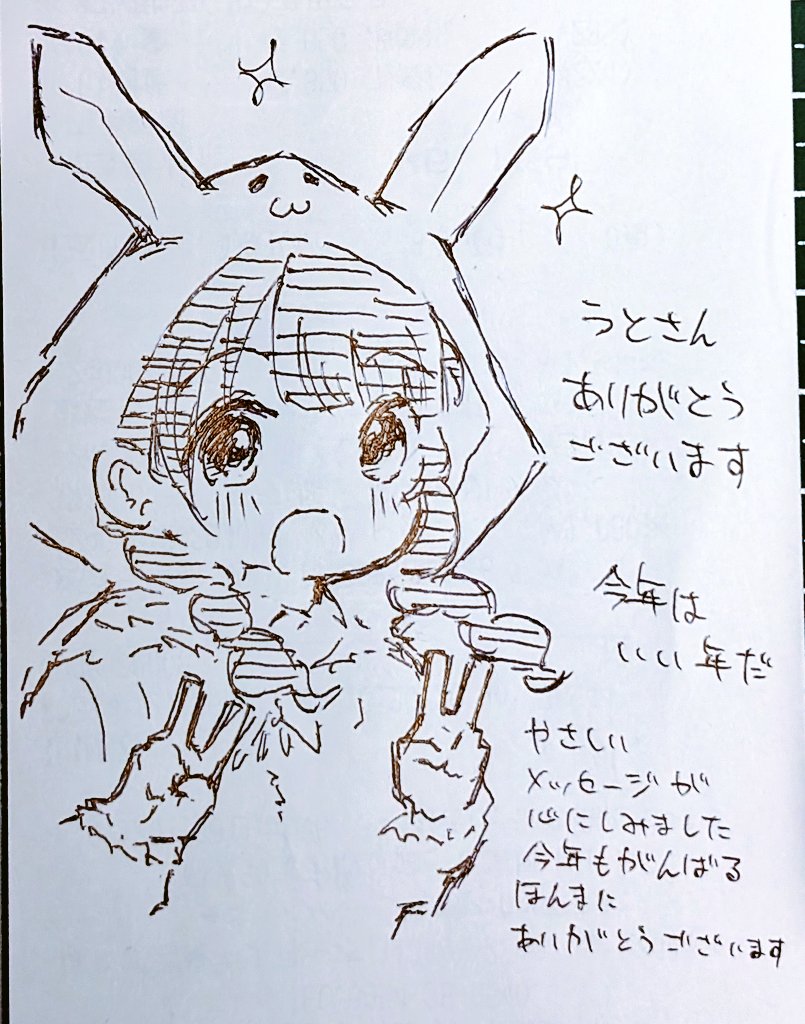 うとさん
ありがとう
ございます
今年は
いい年だ
やさしい
メッセージが
心にしみました
今年もがんばる
ほんまに
ありがとうございます